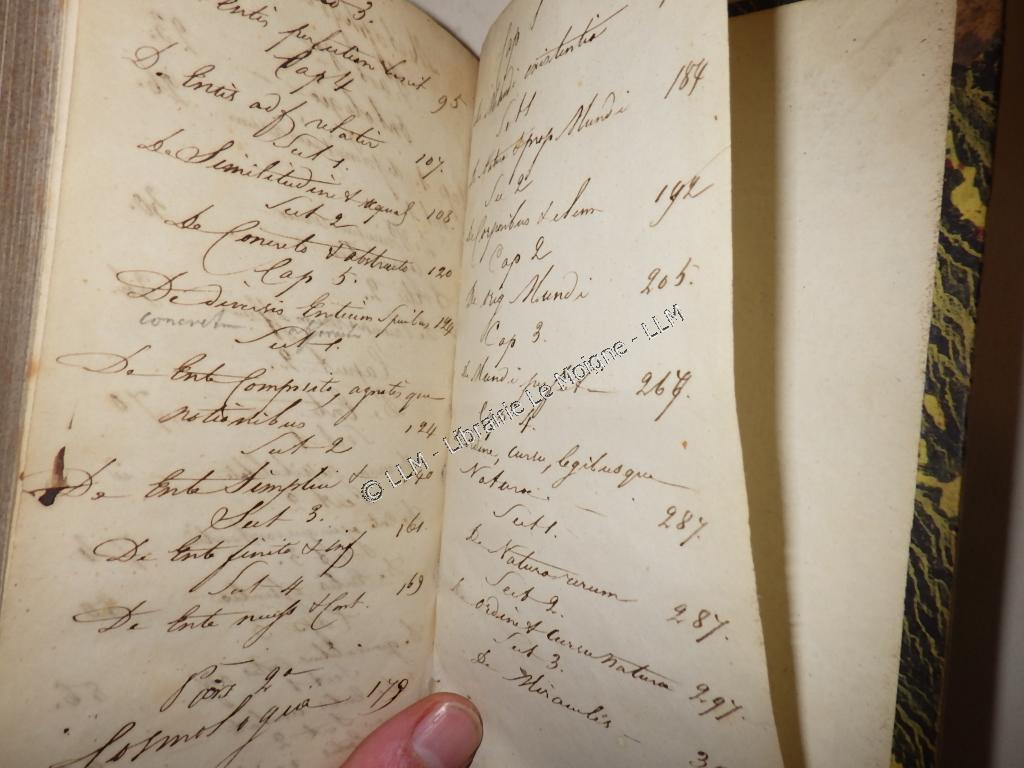 3.
entis perfection
95
Cap 4
De Entis ad relatio
107.
Sect 1.
De Similitudine & equal 108
Sect 2
De Concreto & abstracto 120
Cap 5.
De divisis Entium 124
concretum
Sect 1
De Ente Composito, que
notionibus 124
Sect 2
De Ente Simplici &
Sect 3. 161.
De Ente finito & inf
Sect 4 169
De Ente & Cont.
Pars 2a
Cosmologia 179
Cap
Mundi existentia
Sect 1 184
& prop Mundi
Se 2
de Corporibus & elem 192
Cap 2
de Orig Mundi 205.
Cap 3.
de Mundi 267.
4.
cursu, legibusque
Natura 287
Sect 1.
De Natura rerum 287.
Sect 2.
De ordine & cursu natura 297.
Sect 3.
De Miraculis
© LLM - Librairie Le Moigne - LLM